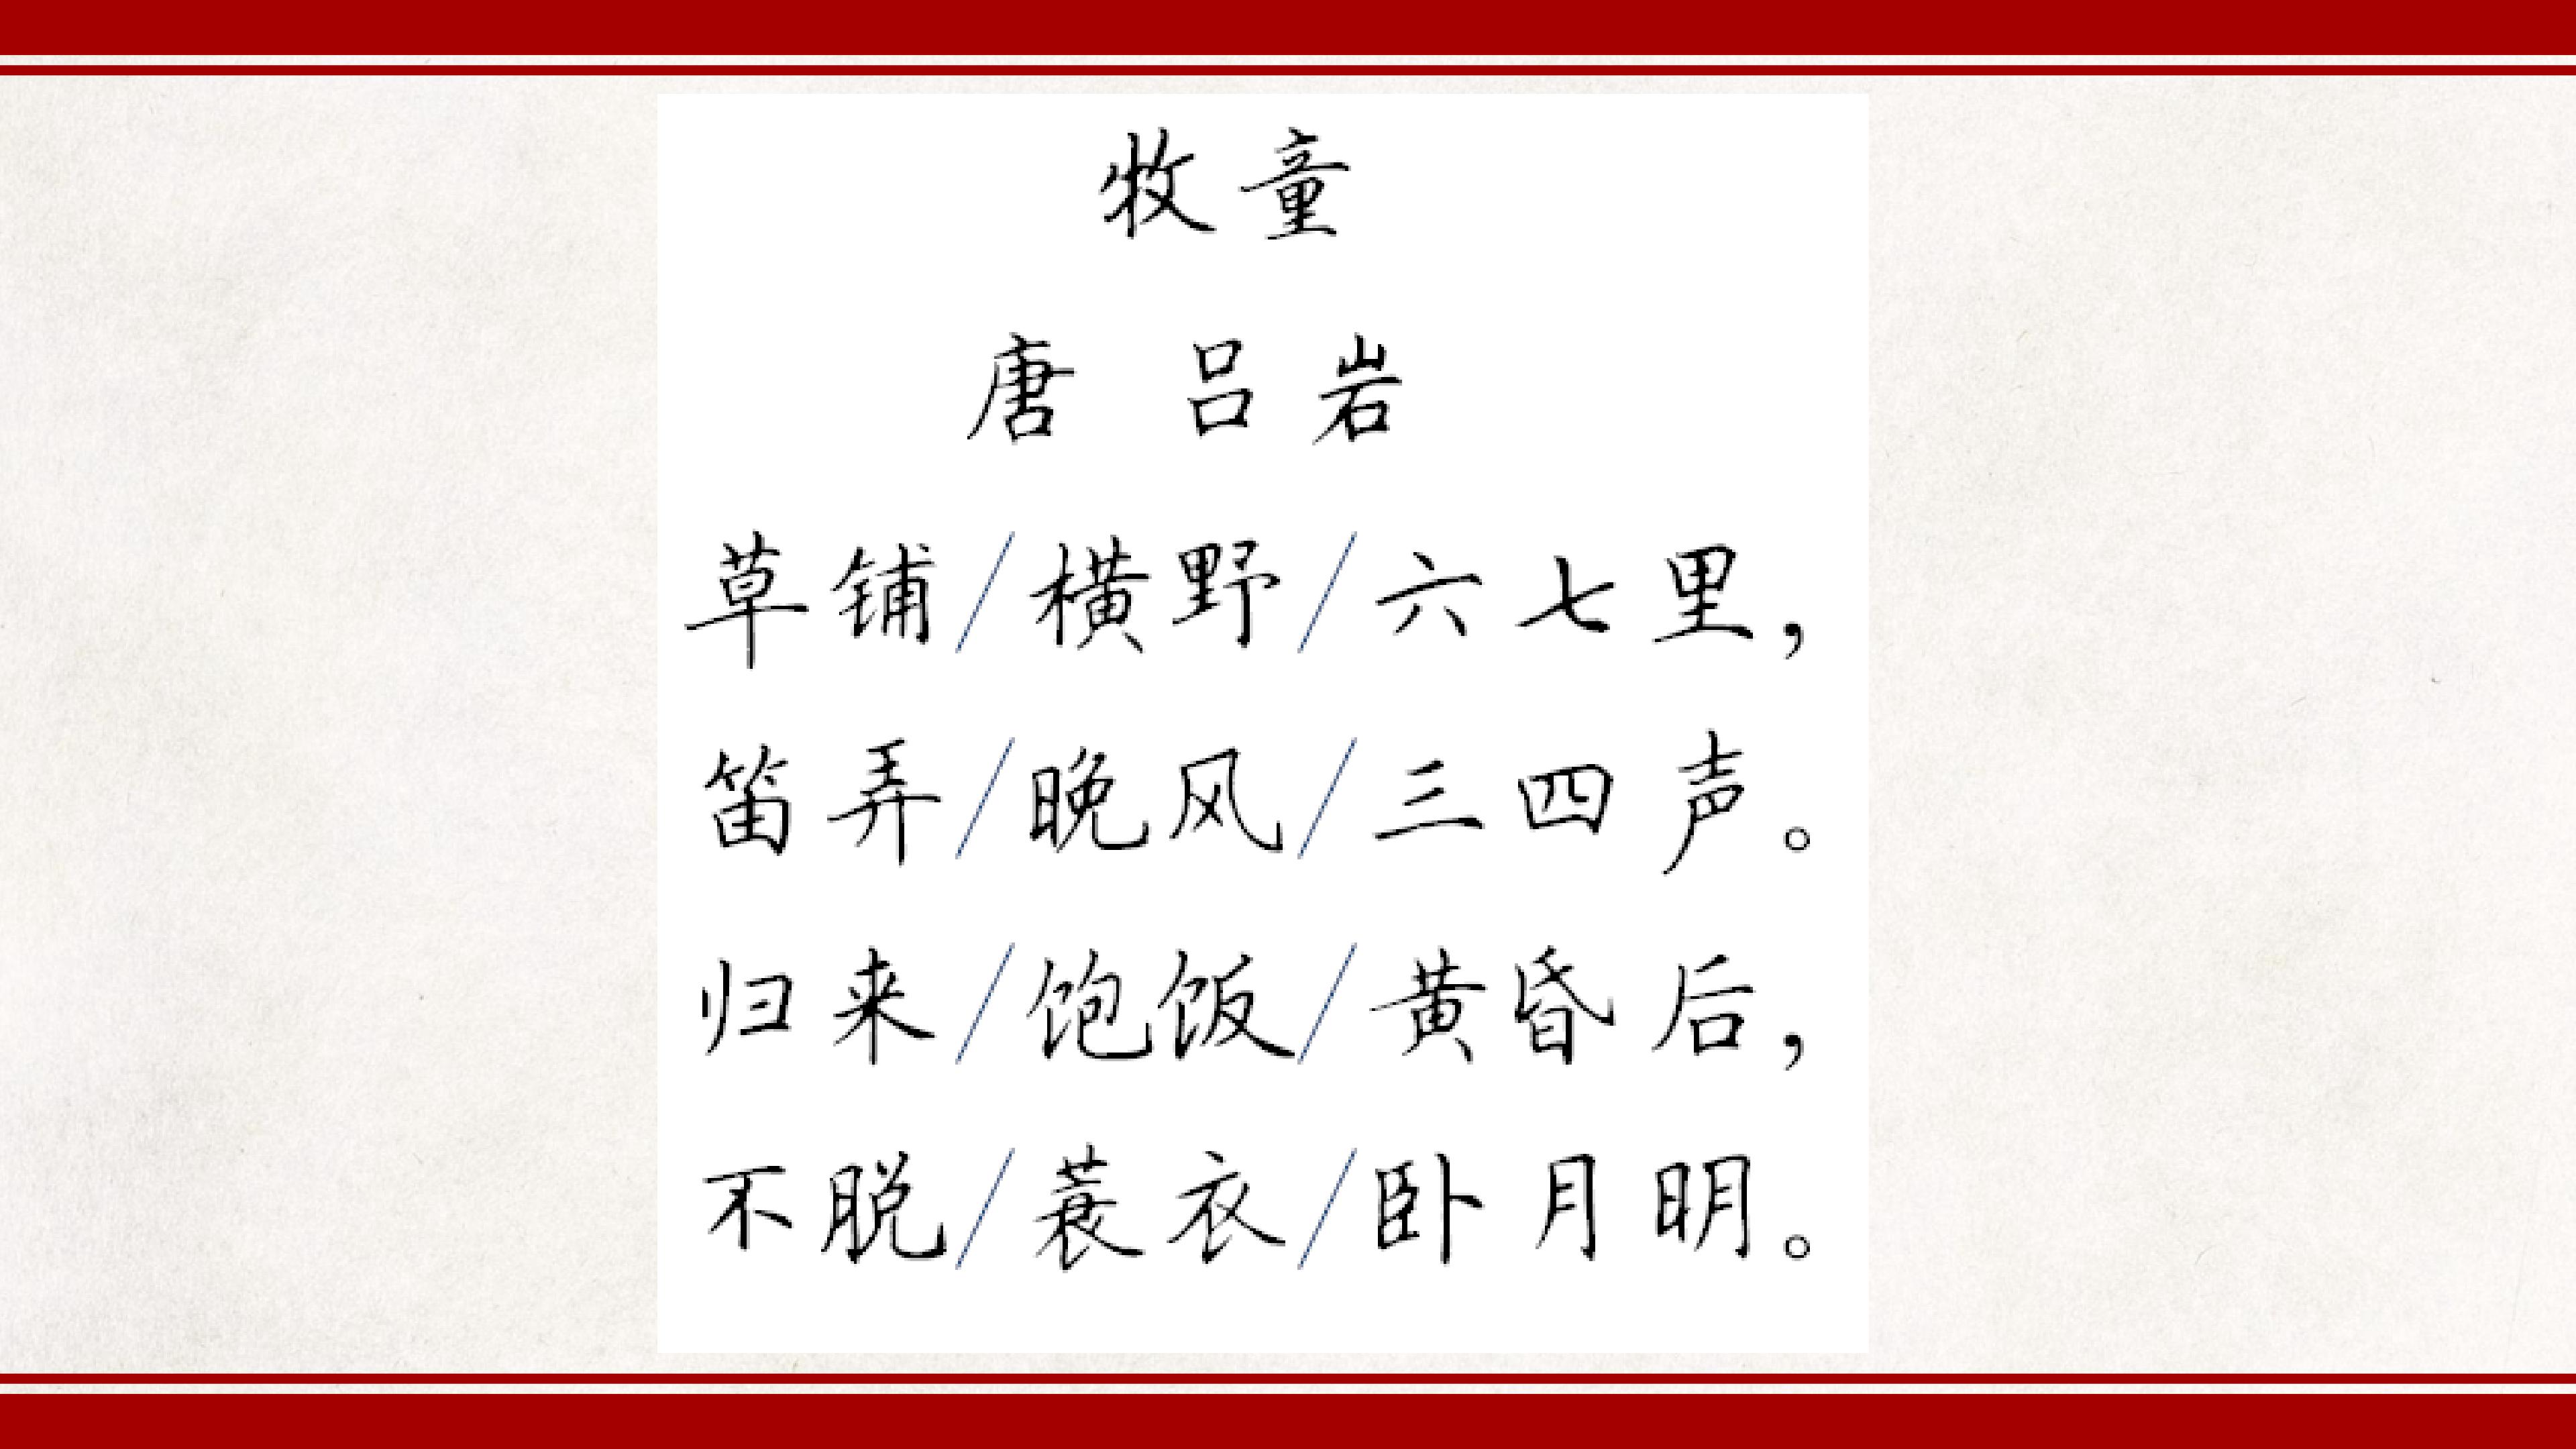 牧童
唐 吕岩
草铺/横野/六七里，
笛弄/晚风/三四声。
归来/饱饭/黄昏后，
不脱/蓑衣/卧月明。